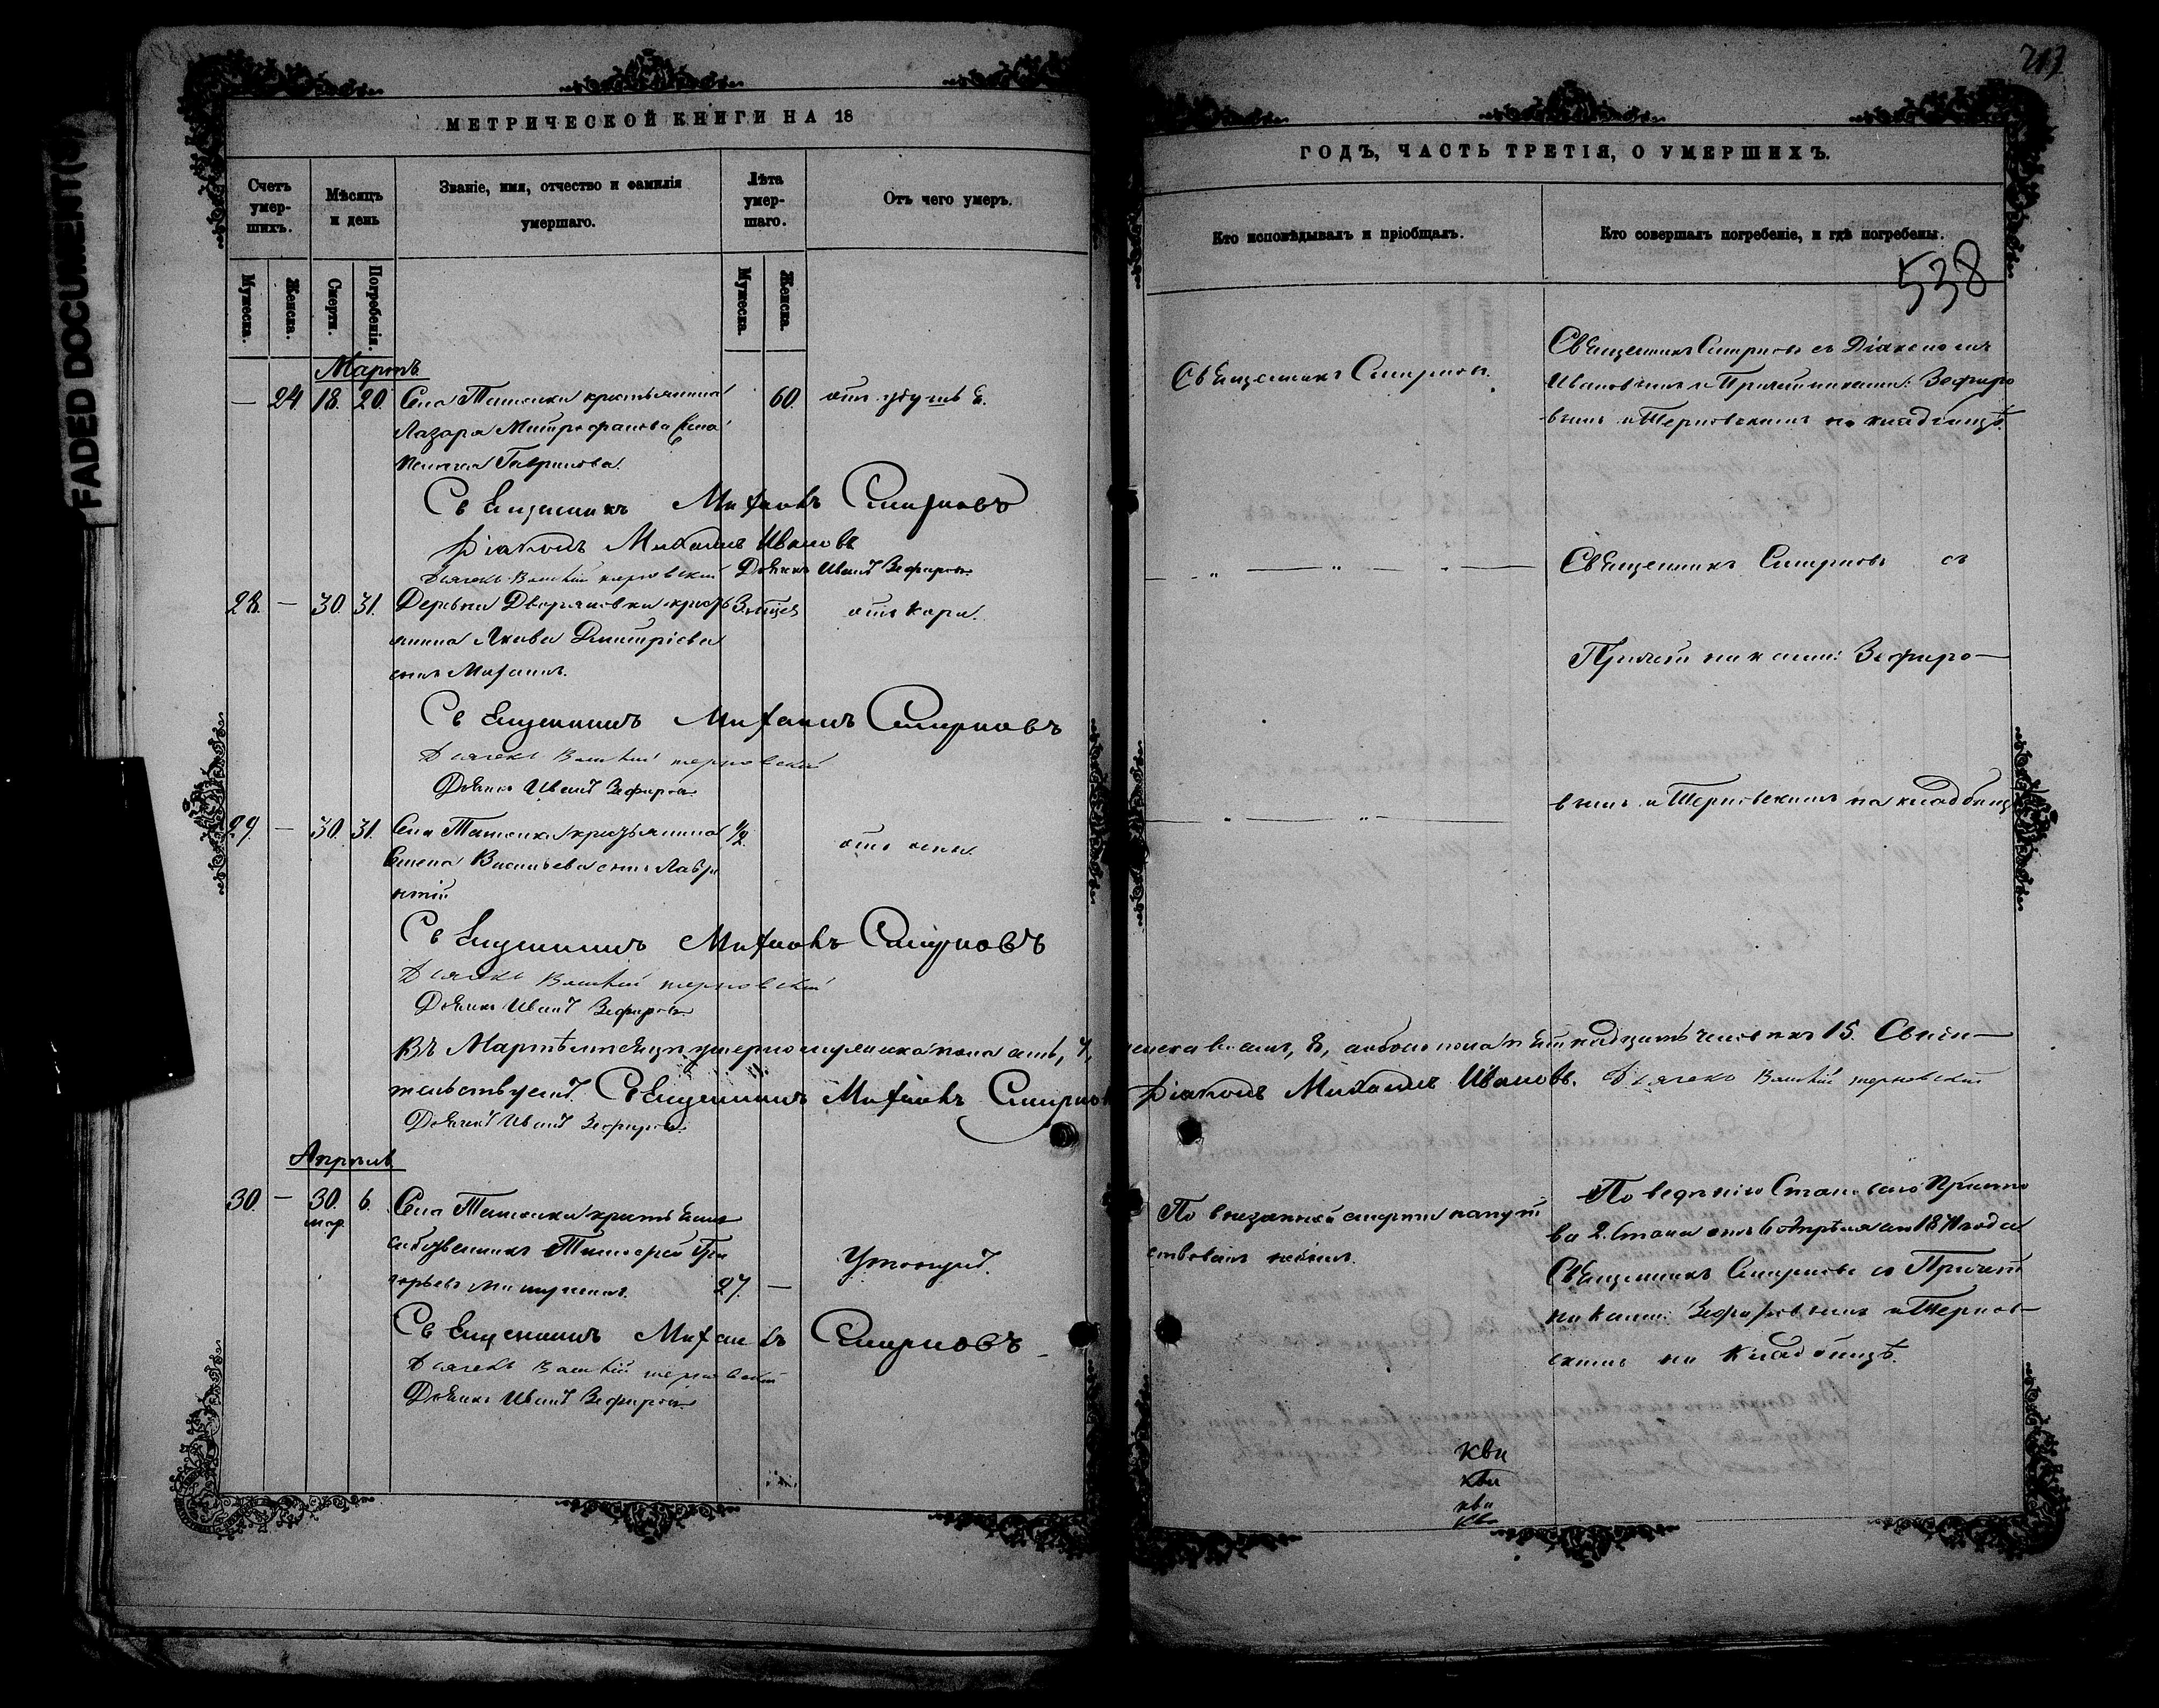 FADED DOCUMENT(S)
МЕТРИЧЕСКОЙ КНИГИ НА 18
Счетъ умер-
шихъ.
Мѣсяцъ
и день
Званіе, имя, отчество и фамилія
умершаго.
Лѣта
умер-
шаго.
Отъ чего умеръ.
Мужеска.
Женска.
Смерти.
Погребенія.
Мужеска.
Женска.
Мартъ
— 24. 18. 20. Села крестьянина 60. отъ
Лазаря Митрофанова жена
Гаврилова.
Священникъ Михаилъ Смирновъ
Діаконъ Михаилъ Ивановъ
Дьячекъ Василій Терновскій Дьячекъ Иванъ Зефировъ
28. — 30. 31. Деревни Дворяновки крестья 3 мѣсяц отъ кори.
нина Якова Димитріева
сынъ Михаилъ.
Священникъ Михаилъ Смирновъ
Дьячекъ Василій Терновскій
Дьячекъ Иванъ Зефировъ
29. — 30. 31. Села крестьянина 1/2 отъ оспы.
Васильева сынъ Лавре
нтій
Священникъ Михаилъ Смирновъ
Дьячекъ Василій Терновскій
Дьячекъ Иванъ Зефировъ
Въ Мартѣ мѣсяцѣ умерло мужеска пола семь, 7,
тельствуютъ. Священникъ Михаилъ Смирновъ
Дьячекъ Иванъ Зефировъ
Апрѣль
30. — 30. 6. Села крестьянинъ
мар.
собственникъ Тимофей Гри
горьевъ 27. — Утонулъ.
Священникъ Михаилъ Смирновъ
Дьячекъ Василій Терновскій
Дьячекъ Иванъ Зефировъ
213
ГОДЪ, ЧАСТЬ ТРЕТІЯ, О УМЕРШИХЪ.
Кто исповѣдывалъ и пріобщалъ.
Кто совершалъ погребеніе, и гдѣ погребены.
538
Священникъ Смирновъ.
Священникъ Смирновъ съ Діакономъ
Ивановымъ и Причетниками: Зефиро
вымъ и Терновскимъ на кладбищѣ.
Священникъ Смирновъ съ
Причетниками: Зефиро—
вымъ и Терновскимъ на кладбищѣ
женска восемь, 8, обоего пола пятнадцать человѣкъ 15. Свидѣ—
Діаконъ Михаилъ Ивановъ. Дьячекъ Василій Терновскій
По внезапной смерти напут
ствованъ небылъ.
По вѣденію Становаго Приста
ва 2. Стана отъ 6 Апрѣля 1871 года
Священникъ Смирновъ съ Причет
никами: Зефировымъ и Тернов—
скимъ на кладбищѣ.